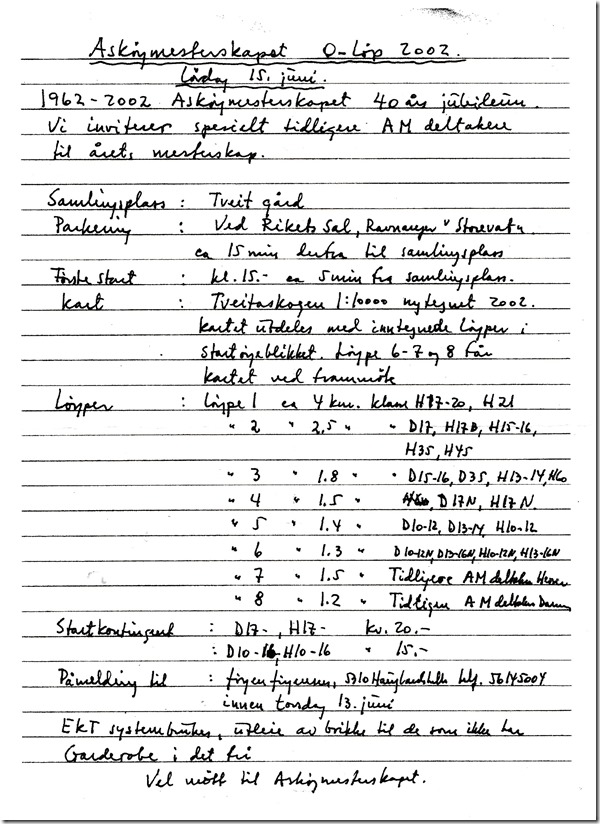 Askøymesterskapet O-Løp 2002.
Lørdag 15. juni.
1962-2002 Askøymesterskapet 40 års jubileum.
Vi inviterer spesielt tidligere AM deltakere
til årets mesterskap.
Samlingsplass : Tveit gård
Parkering : Ved Rikets Sal, Ravnanger v/ Storevatn
ca 15 min derfra til samlingsplass
Første start : kl. 15.- ca 5 min fra samlingsplass.
Kart : Tveitaskogen 1:10000 nytegnet 2002.
Kartet utdeles med inntegnede Løyper i
startøyeblikket. Løype 6-7 og 8 får
kartet ved frammöte
Løyper : Løype 1 ca 4 km. klasse H17-20, H21
" 2 " 2,5 " " D17, H17B, H15-16,
H35, H45
" 3 " 1.8 " " D15-16, D35, H13-14, H60
" 4 " 1.5 " D17N, H17N.
" 5 " 1.4 " D10-12, D13-14, H10-12
" 6 " 1.3 " D10-12N, D13-16N, H10-12N, H13-16N
" 7 " 1.5 " Tidligere AM deltaker Herrer
" 8 " 1.2 " Tidligere AM deltaker Damer
Startkontingent : D17-, H17- Kr. 20.-
: D10-16, H10-16 " 15.-
Påmelding til : 5310 Hauglandshella tlf. 56145004
innen torsdag 13. juni
EKT system brukes, utleie av brikke til de som ikke har
Garderobe i det fri
Vel møtt til Askøymesterskapet.